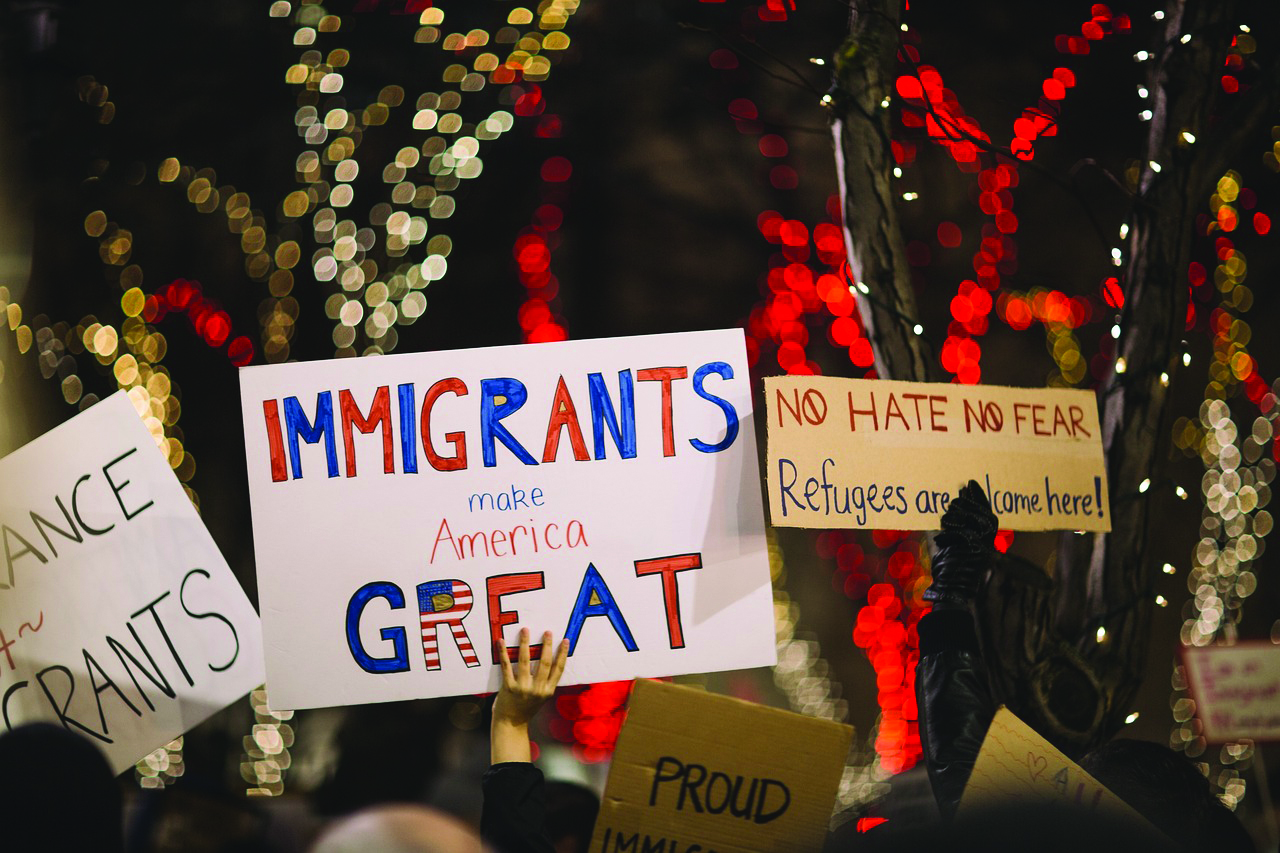 ANCE
GRANTS
IMMIGRANTS
make
America
GREAT
NO HATE NO FEAR
Refugees are lcome here!
PROUD
IMMIG
ALL